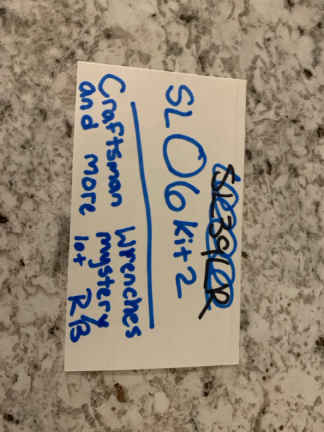 SL06 kit 2
Craftsman Wrenches
and more mystery
lot R/B